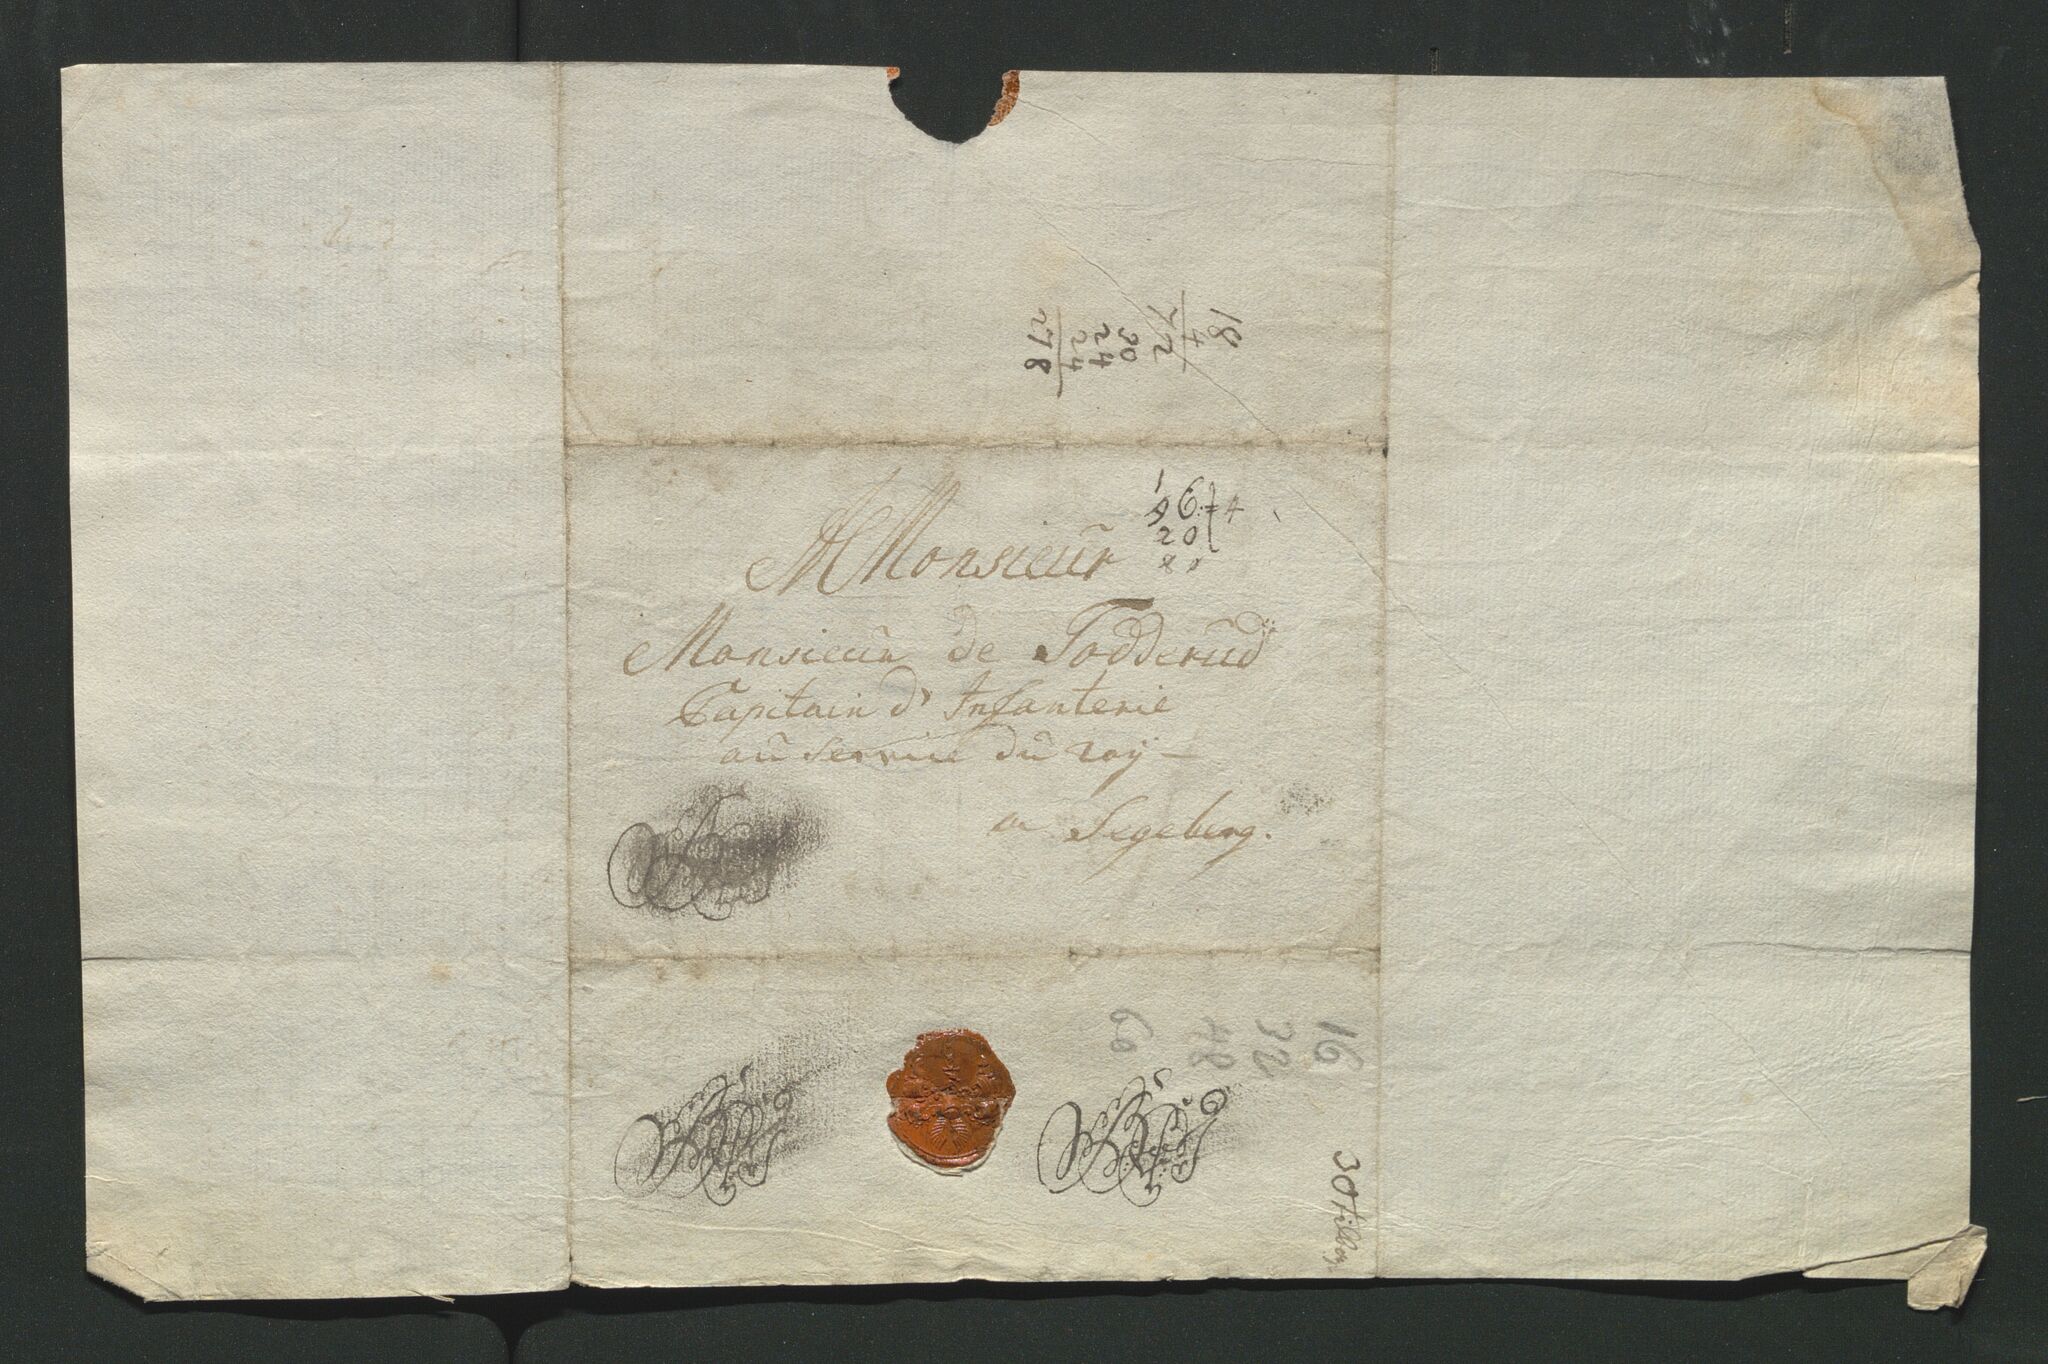 18
4
72
30
24
24
278
16
20
A Monsieur
Monsieur de Todderud
Capitain d'Infanterie
au service du roÿ
a Segeberg.
16
32
48
60